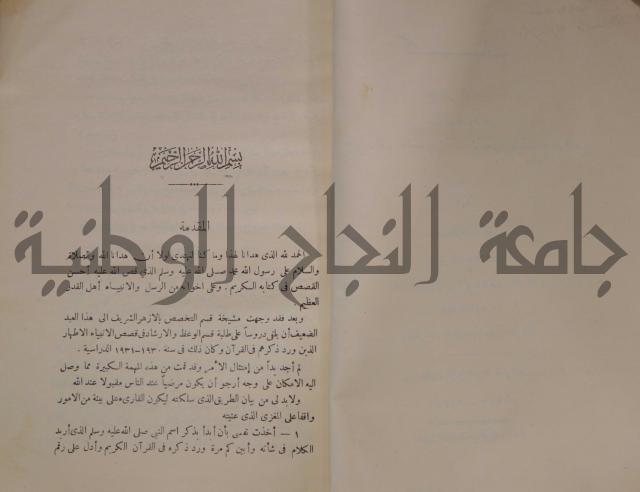 بسم الله الرحمن الرحيم
المقدمة
جامعة النجاح الوطنية
الحمد لله الذى هدانا لهذا وما كنا لنهتدى لولا أن هدانا الله والصلاة
والسلام على رسول الله محمد صلى الله عليه وسلم الذي قص الله عليه أحسن
القصص فى كتابه الكريم. وعلى اخوانه من الرسل والانبياء أهل القدر
العظيم.
وبعد فقد وجهت مشيخة قسم التخصص بالازهر الشريف الى هذا العبد
الضعيف أن يلقى دروساً على طلبة قسم الوعظ والارشاد فى قصص الانبياء الاطهار
الذين ورد ذكرهم فى القرآن وكان ذلك فى سنة ١٩٣٠-١٩٣١ الدراسية.
لم أجد بداً من إمتثال الأمر وقد قمت من هذه المهمة الكبيرة مما وصل
اليه الامكان على وجه أرجو أن يكون مرضياً عند الناس مقبولا عند الله
ولا بد لى من بيان الطريق الذى سلكته ليكون القارىء على بينة من الامور
واقفا على المغزى الذى عنيته
١ — أخذت نفسى بأن أبدأ بذكر اسم النبى صلى الله عليه وسلم الذى أريد
الكلام فى شأنه وأبين كم مرة ورد ذكره فى القرآن الكريم وأدل على رقم